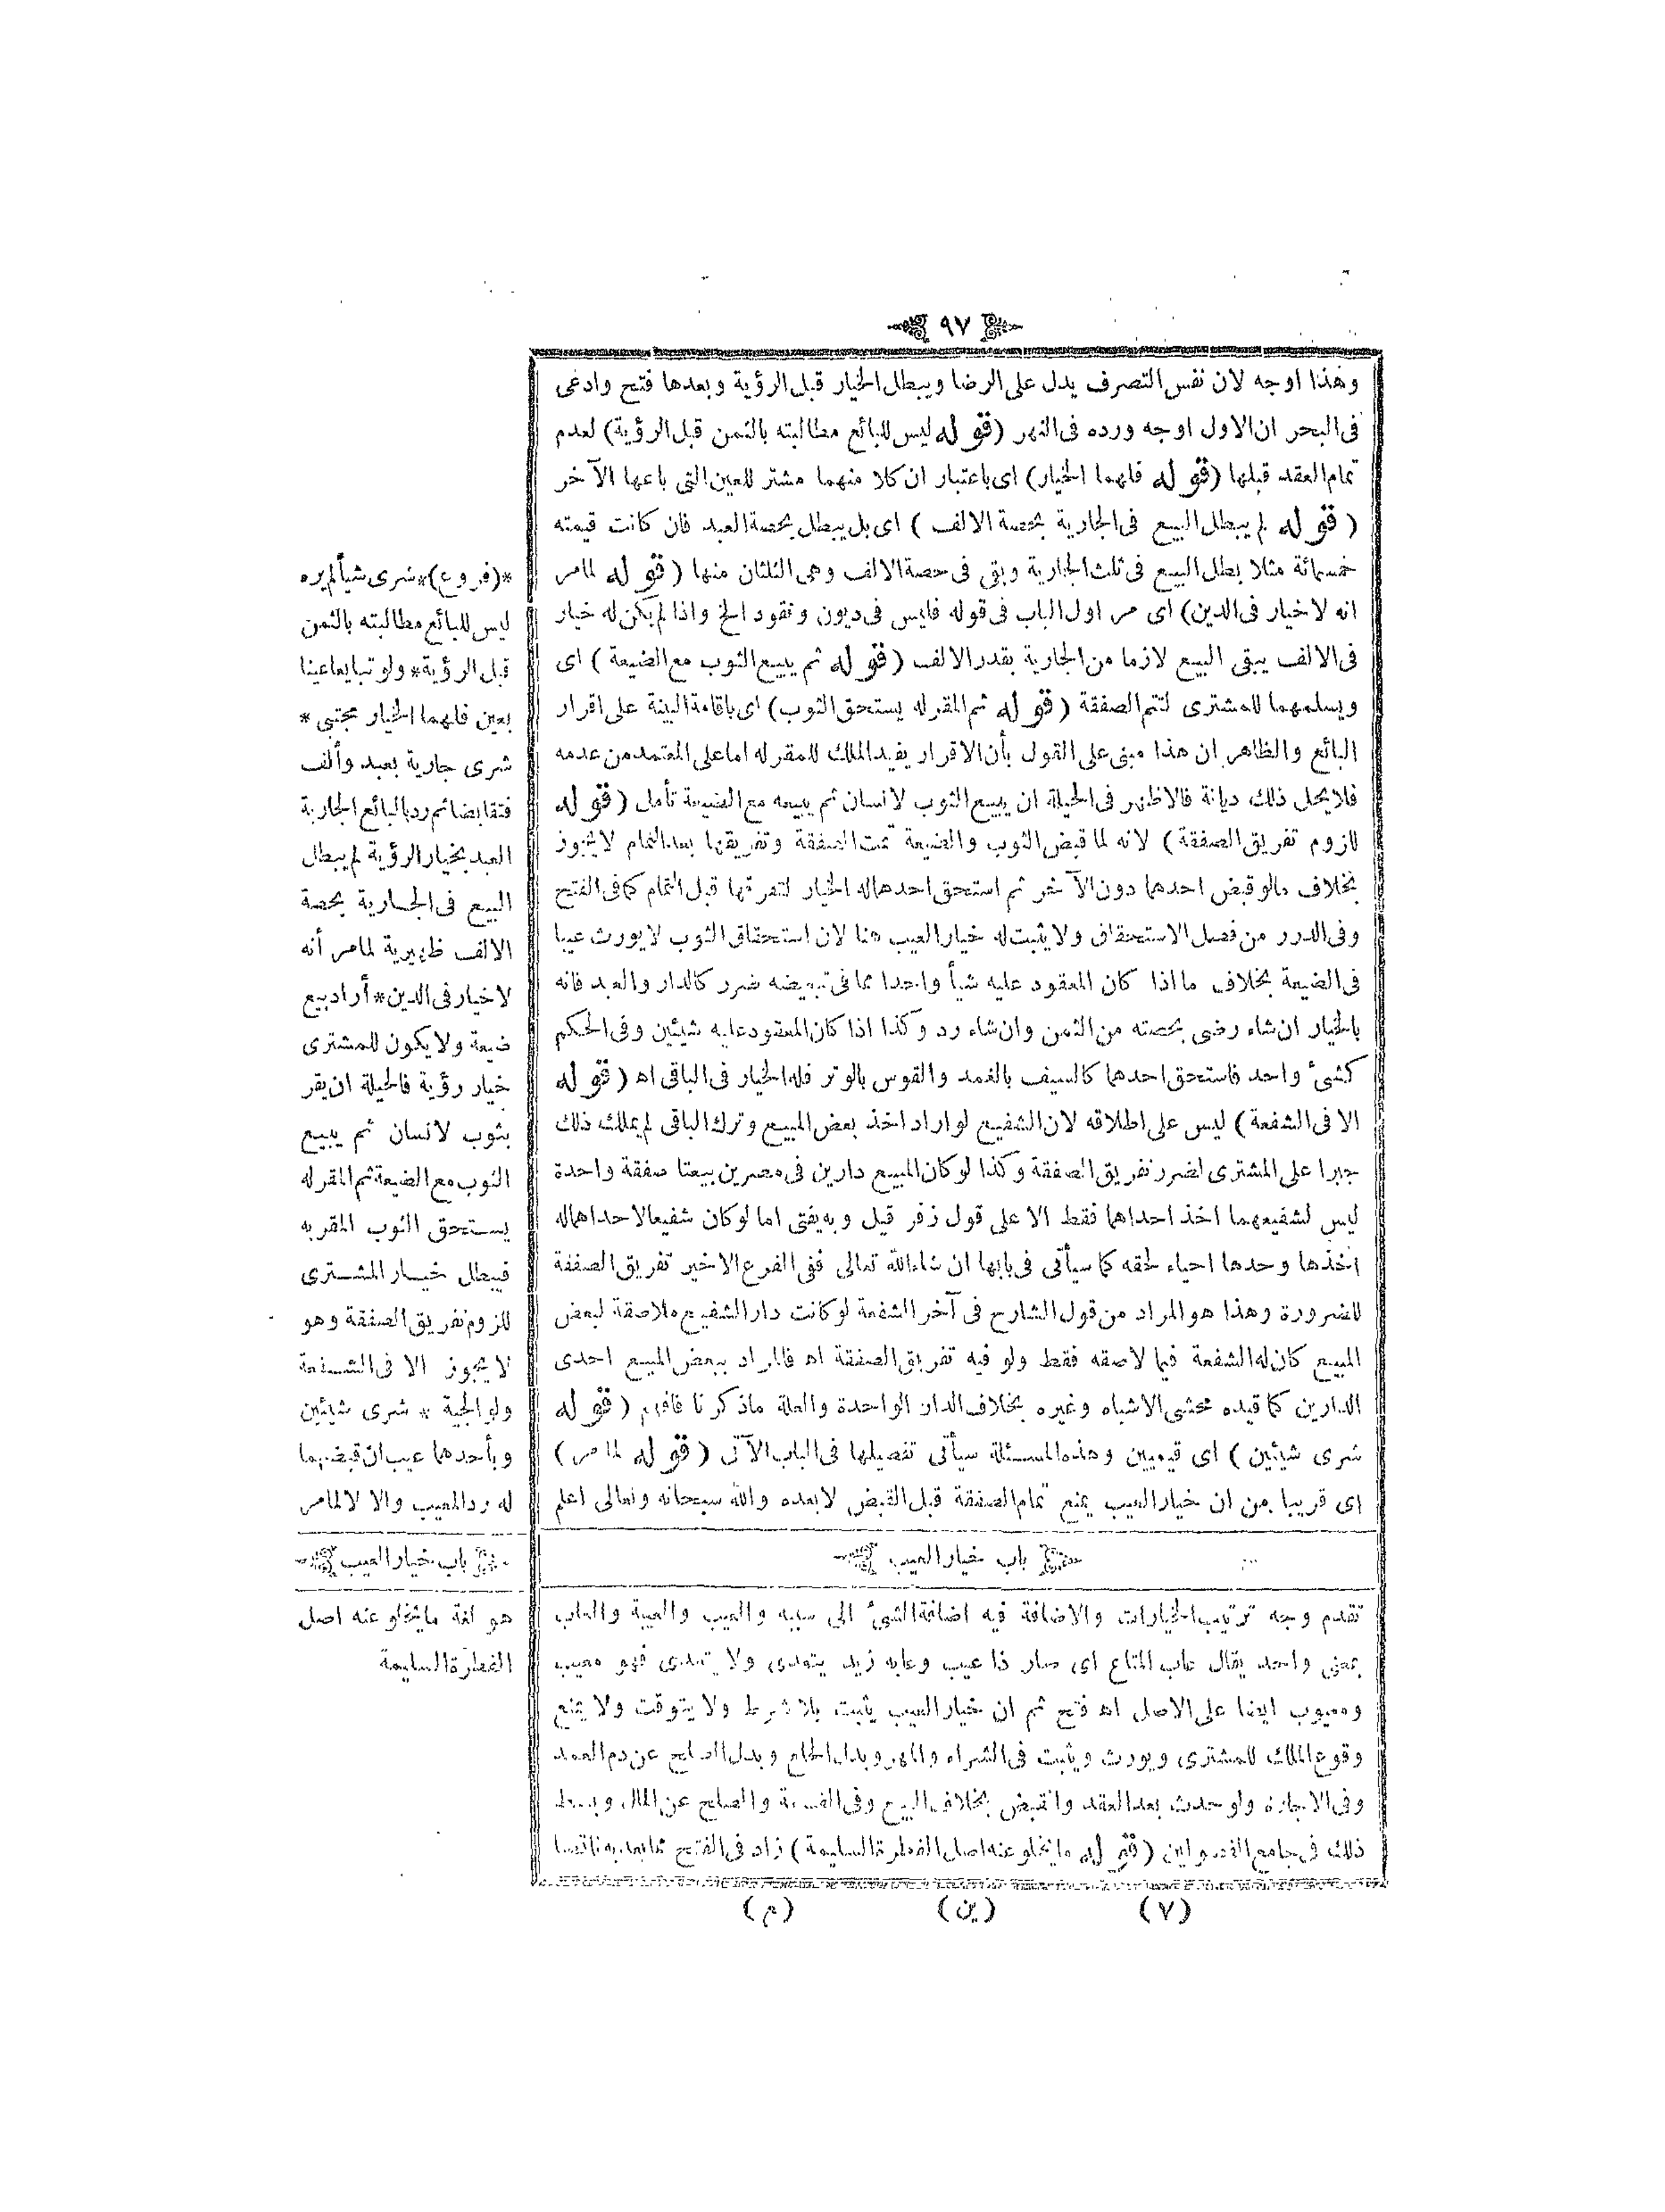 ٩٧
وهذا اوجه لان نفس التصرف يدل على الرضا ويبطل الخيار قبل الرؤية وبعدها فتح وادعى
فى البحر ان الاول اوجه ورده فى النهر (قوله ليس للبائع مطالبته بالثمن قبل الرؤية) لعدم
تمام العقد قبلها (قوله فلهما الخيار) اى باعتبار ان كلا منهما مشتر للعين التى باعها الآخر
(قوله لم يبطل البيع فى الجارية بحصة الالف) اى بل يبطل بحصة العبد فان كانت قيمته
خمسمائة مثلا بطل البيع فى ثلث الجارية وبقى فى حصة الالف وهى الثلثان منها (قوله لمامر
انه لا خيار فى الدين) اى مر اول الباب فى قوله فليس فى ديون ونقود الخ واذا لم يكن له خيار
فى الالف يبقى البيع لازما من الجارية بقدر الالف (قوله ثم يبيع الثوب مع الضيعة) اى
ويسلمهما للمشترى لتتم الصفقة (قوله ثم المقر له يستحق الثوب) اى باقامة البينة على اقرار
البائع والظاهر ان هذا مبنى على القول بأن الاقرار يفيد الملك للمقر له اما على المعتمد من عدمه
فلا يحل ذلك ديانة فالاظهر فى الحيلة ان يبيع الثوب لانسان ثم يبيعه مع الضيعة تأمل (قوله
للزوم تفريق الصفقة) لانه لما قبض الثوب والضيعة تمت الصفقة وتفريقها بعد التمام لا يجوز
بخلاف مالو قبض احدهما دون الآخر ثم استحق احدهما له الخيار لتفرقها قبل التمام كما فى الفتح
وفى الدرر من فصل الاستحقاق ولا يثبت له خيار العيب هنا لان استحقاق الثوب لا يورث عيبا
فى الضيعة بخلاف ما اذا كان المعقود عليه شيأ واحدا مما فى تبعيضه ضرر كالدار والعبد فانه
بالخيار ان شاء رضى بحصته من الثمن وان شاء رد وكذا اذا كان المعقود عليه شيئين وفى الحكم
كشئ واحد فاستحق احدهما كالسيف بالغمد والقوس بالوتر فله الخيار فى الباقى اه (قوله
الا فى الشفعة) ليس على اطلاقه لان الشفيع لو اراد اخذ بعض المبيع وترك الباقى لم يملك ذلك
جبرا على المشترى لضرر تفريق الصفقة وكذا لو كان المبيع دارين فى مصرين بيعتا صفقة واحدة
ليس لشفيعهما اخذ احداهما فقط الا على قول زفر قيل وبه يفتى اما لو كان شفيعا لاحداهما له
اخذها وحدها احياء لحقه كما سيأتى فى بابها ان شاء الله تعالى ففى الفرع الاخير تفريق الصفقة
للضرورة وهذا هو المراد من قول الشارح فى آخر الشفعة لو كانت دار الشفيع ملاصقة لبعض
المبيع كان له الشفعة فيما لاصقه فقط ولو فيه تفريق الصفقة اه فالمراد ببعض المبيع احدى
الدارين كما قيده محشى الاشباه وغيره بخلاف الدار الواحدة والعلة ماذكرنا فافهم (قوله
شرى شيئين) اى قيميين وهذه المسئلة سيأتى تفصيلها فى الباب الآتى (قوله لمامر)
اى قريبا من ان خيار العيب يمنع تمام الصفقة قبل القبض لا بعده والله سبحانه وتعالى اعلم
باب خيار العيب
تقدم وجه ترتيب الخيارات والاضافة فيه اضافة الشئ الى سببه والعيب والعيبة والعاب
بمعنى واحد يقال عاب المتاع اى صار ذا عيب وعابه زيد يتعدى ولا يتعدى فهو معيب
ومعيوب ايضا على الاصل اه فتح ثم ان خيار العيب يثبت بلا شرط ولا يتوقت ولا يمنع
وقوع الملك للمشترى ويورث ويثبت فى الشراء والمهر وبدل الخلع وبدل الصلح عن دم العمد
وفى الاجارة ولو حدث بعد العقد والقبض بخلاف البيع وفى القسمة والصلح عن المال وبسط
ذلك فى جامع الفصولين (قوله ما يخلو عنه اصل الفطرة السليمة) زاد فى الفتح مما يعد به ناقصا
*(فروع)* شرى شيأ لم يره
ليس للبائع مطالبته بالثمن
قبل الرؤية* ولو تبايعا عينا
بعين فلهما الخيار مجتبى*
شرى جارية بعبد وألف
فتقابضا ثم رد بائع الجارية
العبد بخيار الرؤية لم يبطل
البيع فى الجارية بحصة
الالف ظهيرية لمامر أنه
لا خيار فى الدين* أراد بيع
ضيعة ولا يكون للمشترى
خيار رؤية فالحيلة ان يقر
بثوب لانسان ثم يبيع
الثوب مع الضيعة ثم المقر له
يستحق الثوب المقر به
فيبطل خيار المشترى
للزوم تفريق الصفقة وهو
لا يجوز الا فى الشفعة
ولوالجية * شرى شيئين
وبأحدهما عيب ان قبضهما
له رد المعيب والا لا لمامر
باب خيار العيب
هو لغة ما يخلو عنه اصل
الفطرة السليمة
(٧) (ين) (م)